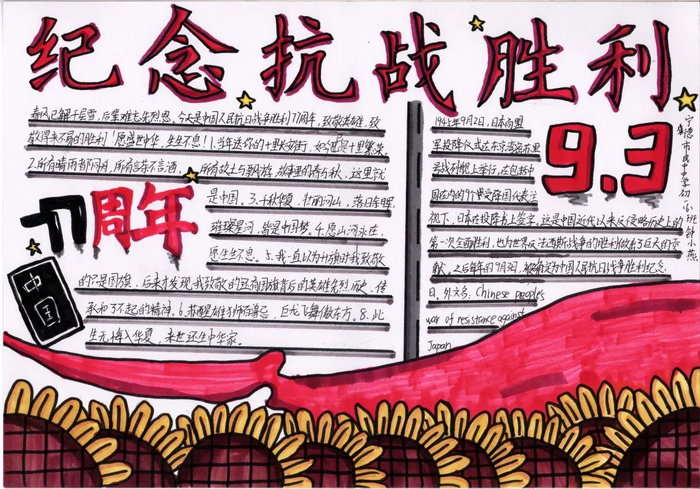 纪念抗战胜利
春风已解千层雪,后辈难忘先烈恩,今天是中国人民抗日战争胜利77周年,致敬英雄,致
敬得来不易的胜利!愿盛世中华,生生不息!1.当年送你的十里长安街,如今已是十里繁荣
2.所有晴雨都同舟,所有言在不言酒,所有故土与飘游,故事里的春与秋,这里就
是中国.3.千秋华夏,壮丽河山,落日余晖
璀璨星河,皆是中国梦.4.愿山河永在,
愿生生不息.5.我一直以为升旗时我致敬
的是国旗,后来才发现,我致敬的五福国旗背后的英雄先烈
承和了不起的精神.6.若醒雄狮百兽忌,巨龙飞舞傲东方.8.此
生无悔入华夏,来世还生中华家。
77周年
中国
1945年9月2日,日本向盟
军投降仪式在东京湾密苏里
号战列舰上举行,在包括中
国在内的9个受降国代表注
视下,日本在投降书上签字,这是中国近代以来反侵略历史上的
第一次全面胜利,也为世界反法西斯战争的胜利做出了巨大的贡
献.之后每年的9月3日,被确定为中国人民抗日战争胜利纪念
日.外文名:Chinese peoples
war of resistance against
Japan
9.3
宁德市民中学初一(1)班钟小燕